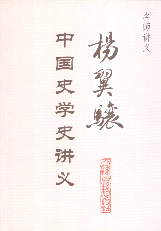 名师讲义
杨翼骧
中国史学史讲义